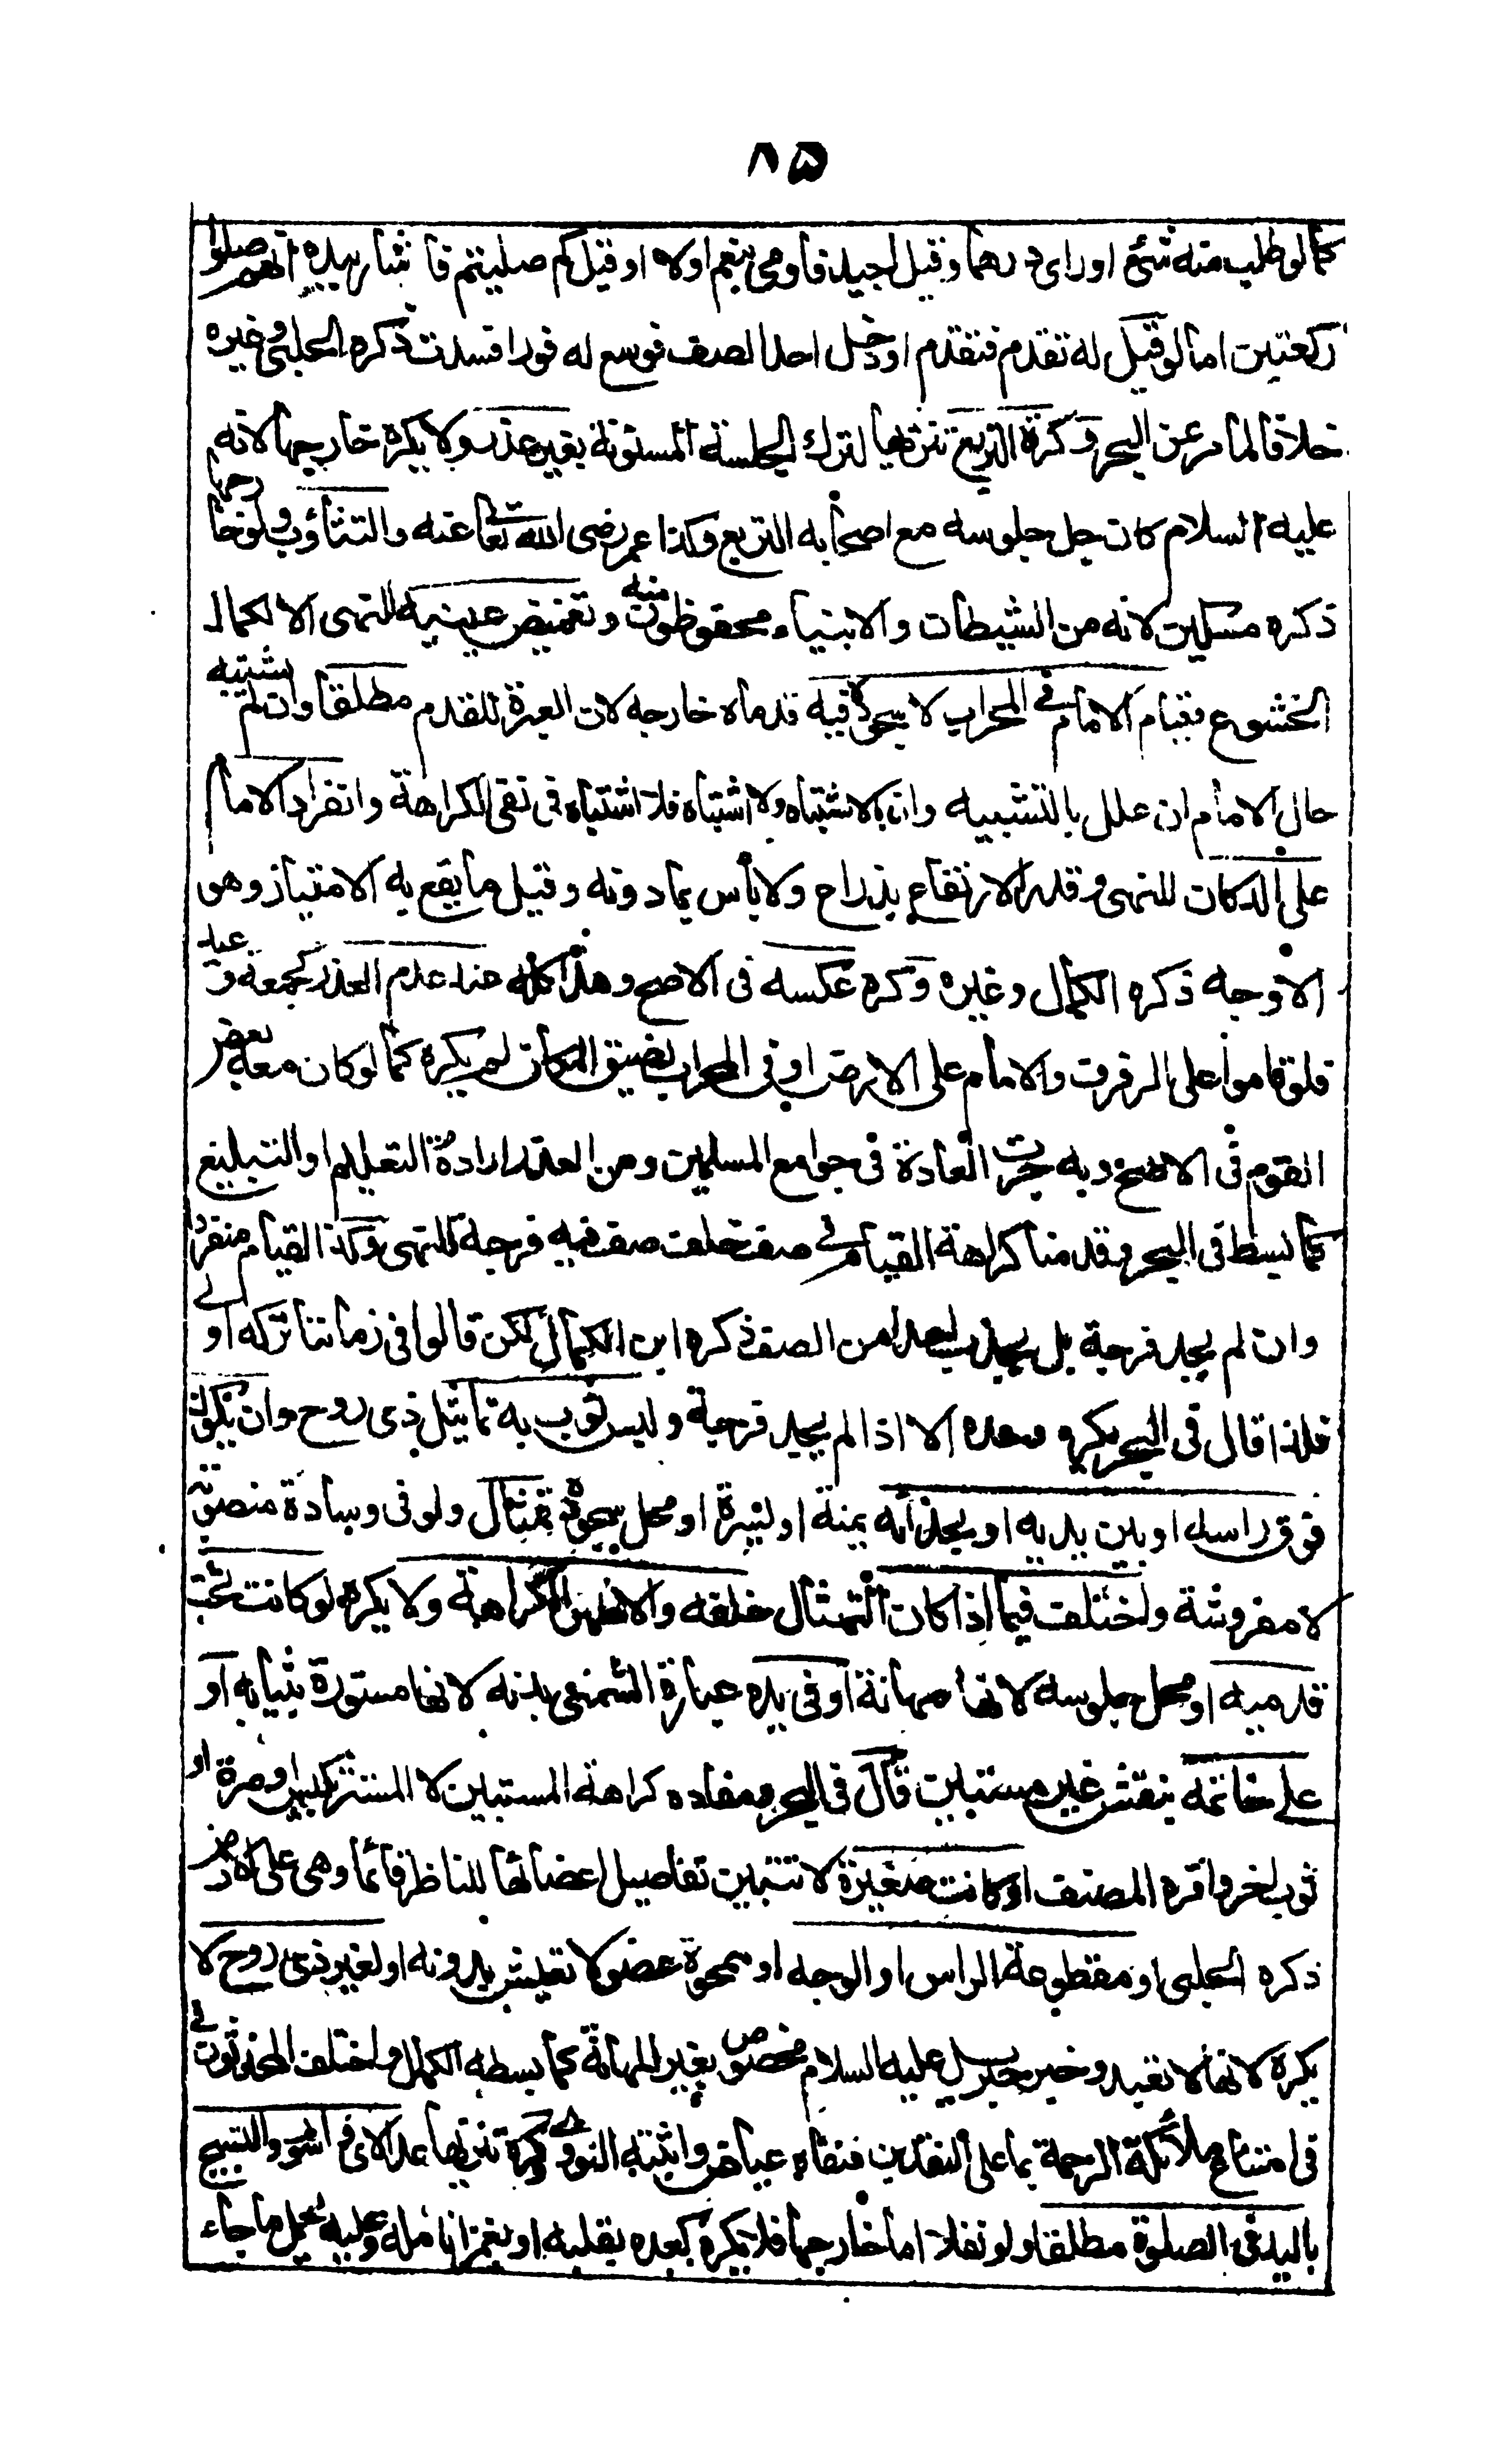 ٨٥
كما لو طلب منه شئ او راى درهما وقيل اجيد فاومى بنعم اولا او قيل كم صليتم فاشار بيده انهم صلوا
ركعتين اما لو قيل له تقدم فتقدم او دخل احد الصف فوسع له فورا فسدت ذكره الحلبي وغيره
خلافا لما مر عن البحر وكره التربع تنزيها لترك الجلسة المسنونة بغير عذر ولا يكره خارجها لانه
عليه السلام كان جل جلوسه مع اصحابه التربع وكذا عمر رضى الله تعالى عنه والتثاؤب ولو خارجها
ذكره مسكين لانه من الشيطان والانبياء محفوظون منه وتغميض عينيه للنهى الا لكمال
الخشوع وقيام الامام في المحراب لا سجوده فيه قدماه خارجه لان العبرة للقدم مطلقا وان لم يشتبه
حال الامام ان علل بالتشبيه وان بالاشتباه ولا اشتباه فلا اشتباه في نفى الكراهة وانفراد الامام
على الدكان للنهى وقدر الارتفاع بذراع ولا بأس بما دونه وقيل ما يقع به الامتياز وهو
الاوجه ذكره الكمال وغيره وكره عكسه في الاصح وهذا كله عند عدم العذر كجمعة وعيد
فلو قاموا على الرفوف والامام على الارض او في المحراب لضيق المكان لم يكره كما لو كان معه بعض
القوم في الاصح وبه جرت العادة في جوامع المسلمين ومن العذر ارادة التعليم او التبليغ
كما بسط في البحر وقدمنا كراهة القيام في صف خلف صف فيه فرجة للنهى وكذا القيام منفردا
وان لم يجد فرجة بل يجذب احدا من الصف ذكره ابن الكمال لكن قالوا في زماننا تركه اولى
فلذا قال في البحر يكره وحده الا اذا لم يجد فرجة ولبس ثوب به تماثيل ذى روح وان يكون
فوق راسه او بين يديه او بحذائه يمنة او يسرة او محل سجوده تمثال ولو في وسادة منصوبة
لا مفروشة واختلف فيما اذا كان التمثال خلفه والاظهر الكراهة ولا يكره لو كانت تحت
قدميه او محل جلوسه لانها مهانة او في يده عبارة الشمنى بدنه لانها مستورة بثيابه او
على خاتمه بنقش غير مستبين قال في البحر ومفاده كراهة المستبين لا المستتر بكيس او صرة او
ثوب اخر واقره المصنف او كانت صغيرة لا تتبين تفاصيل اعضائها للناظر قائما وهى على الارض
ذكره الحلبى او مقطوعة الراس او الوجه او ممحوة عضو لا تعيش بدونه او لغير ذى روح لا
يكره لانها لا تعبد وخبر جبريل عليه السلام مخصوص بغير المهانة كما بسطه الكمال واختلف المحدثون في
في امتناع ملائكة الرحمة بما على النقدين فنفاه عياض واثبته النووى وكره تنزيها عد الاى والسور والتسبيح
باليد في الصلوة مطلقا ولو نفلا اما خارجها فلا يكره كعده بقلبه او بغمزه انامله وعليه يحمل ما جاء